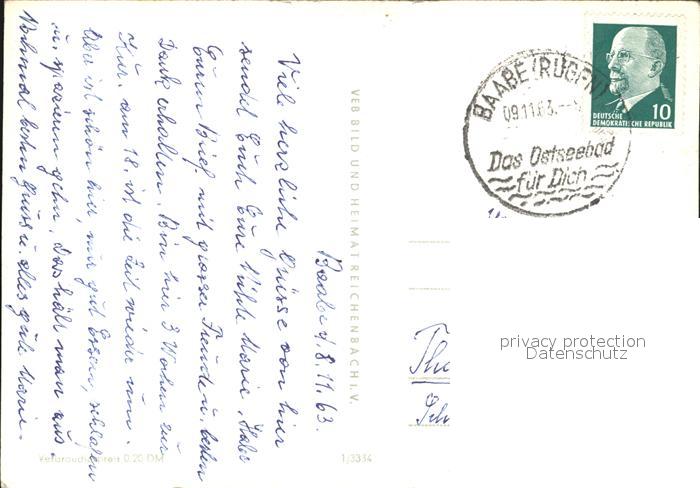 Baabe d. 8.11.63.
Viele herzliche Grüsse von hier
sendet Euch Eure Marie. Habe
Euren Brief mit grosser Freude u. besten
Dank erhalten. Bin hier 3 Wochen zur
Kur. am 18. ist die Zeit wieder um.
Aber ist schön hier, nur gut Essen, schlafen
u. spazieren gehn. Das hält man aus.
Nochmal besten Gruss u. alles gute Marie.
VEB BILD UND HEIMAT REICHENBACH I. V.
Verbraucherpreis 0.20 DM
1/3334
BAABE (RÜGEN)
09.11.63.
Das Ostseebad
für Dich
10
DEUTSCHE
DEMOKRATISCHE REPUBLIK
privacy protection
Datenschutz